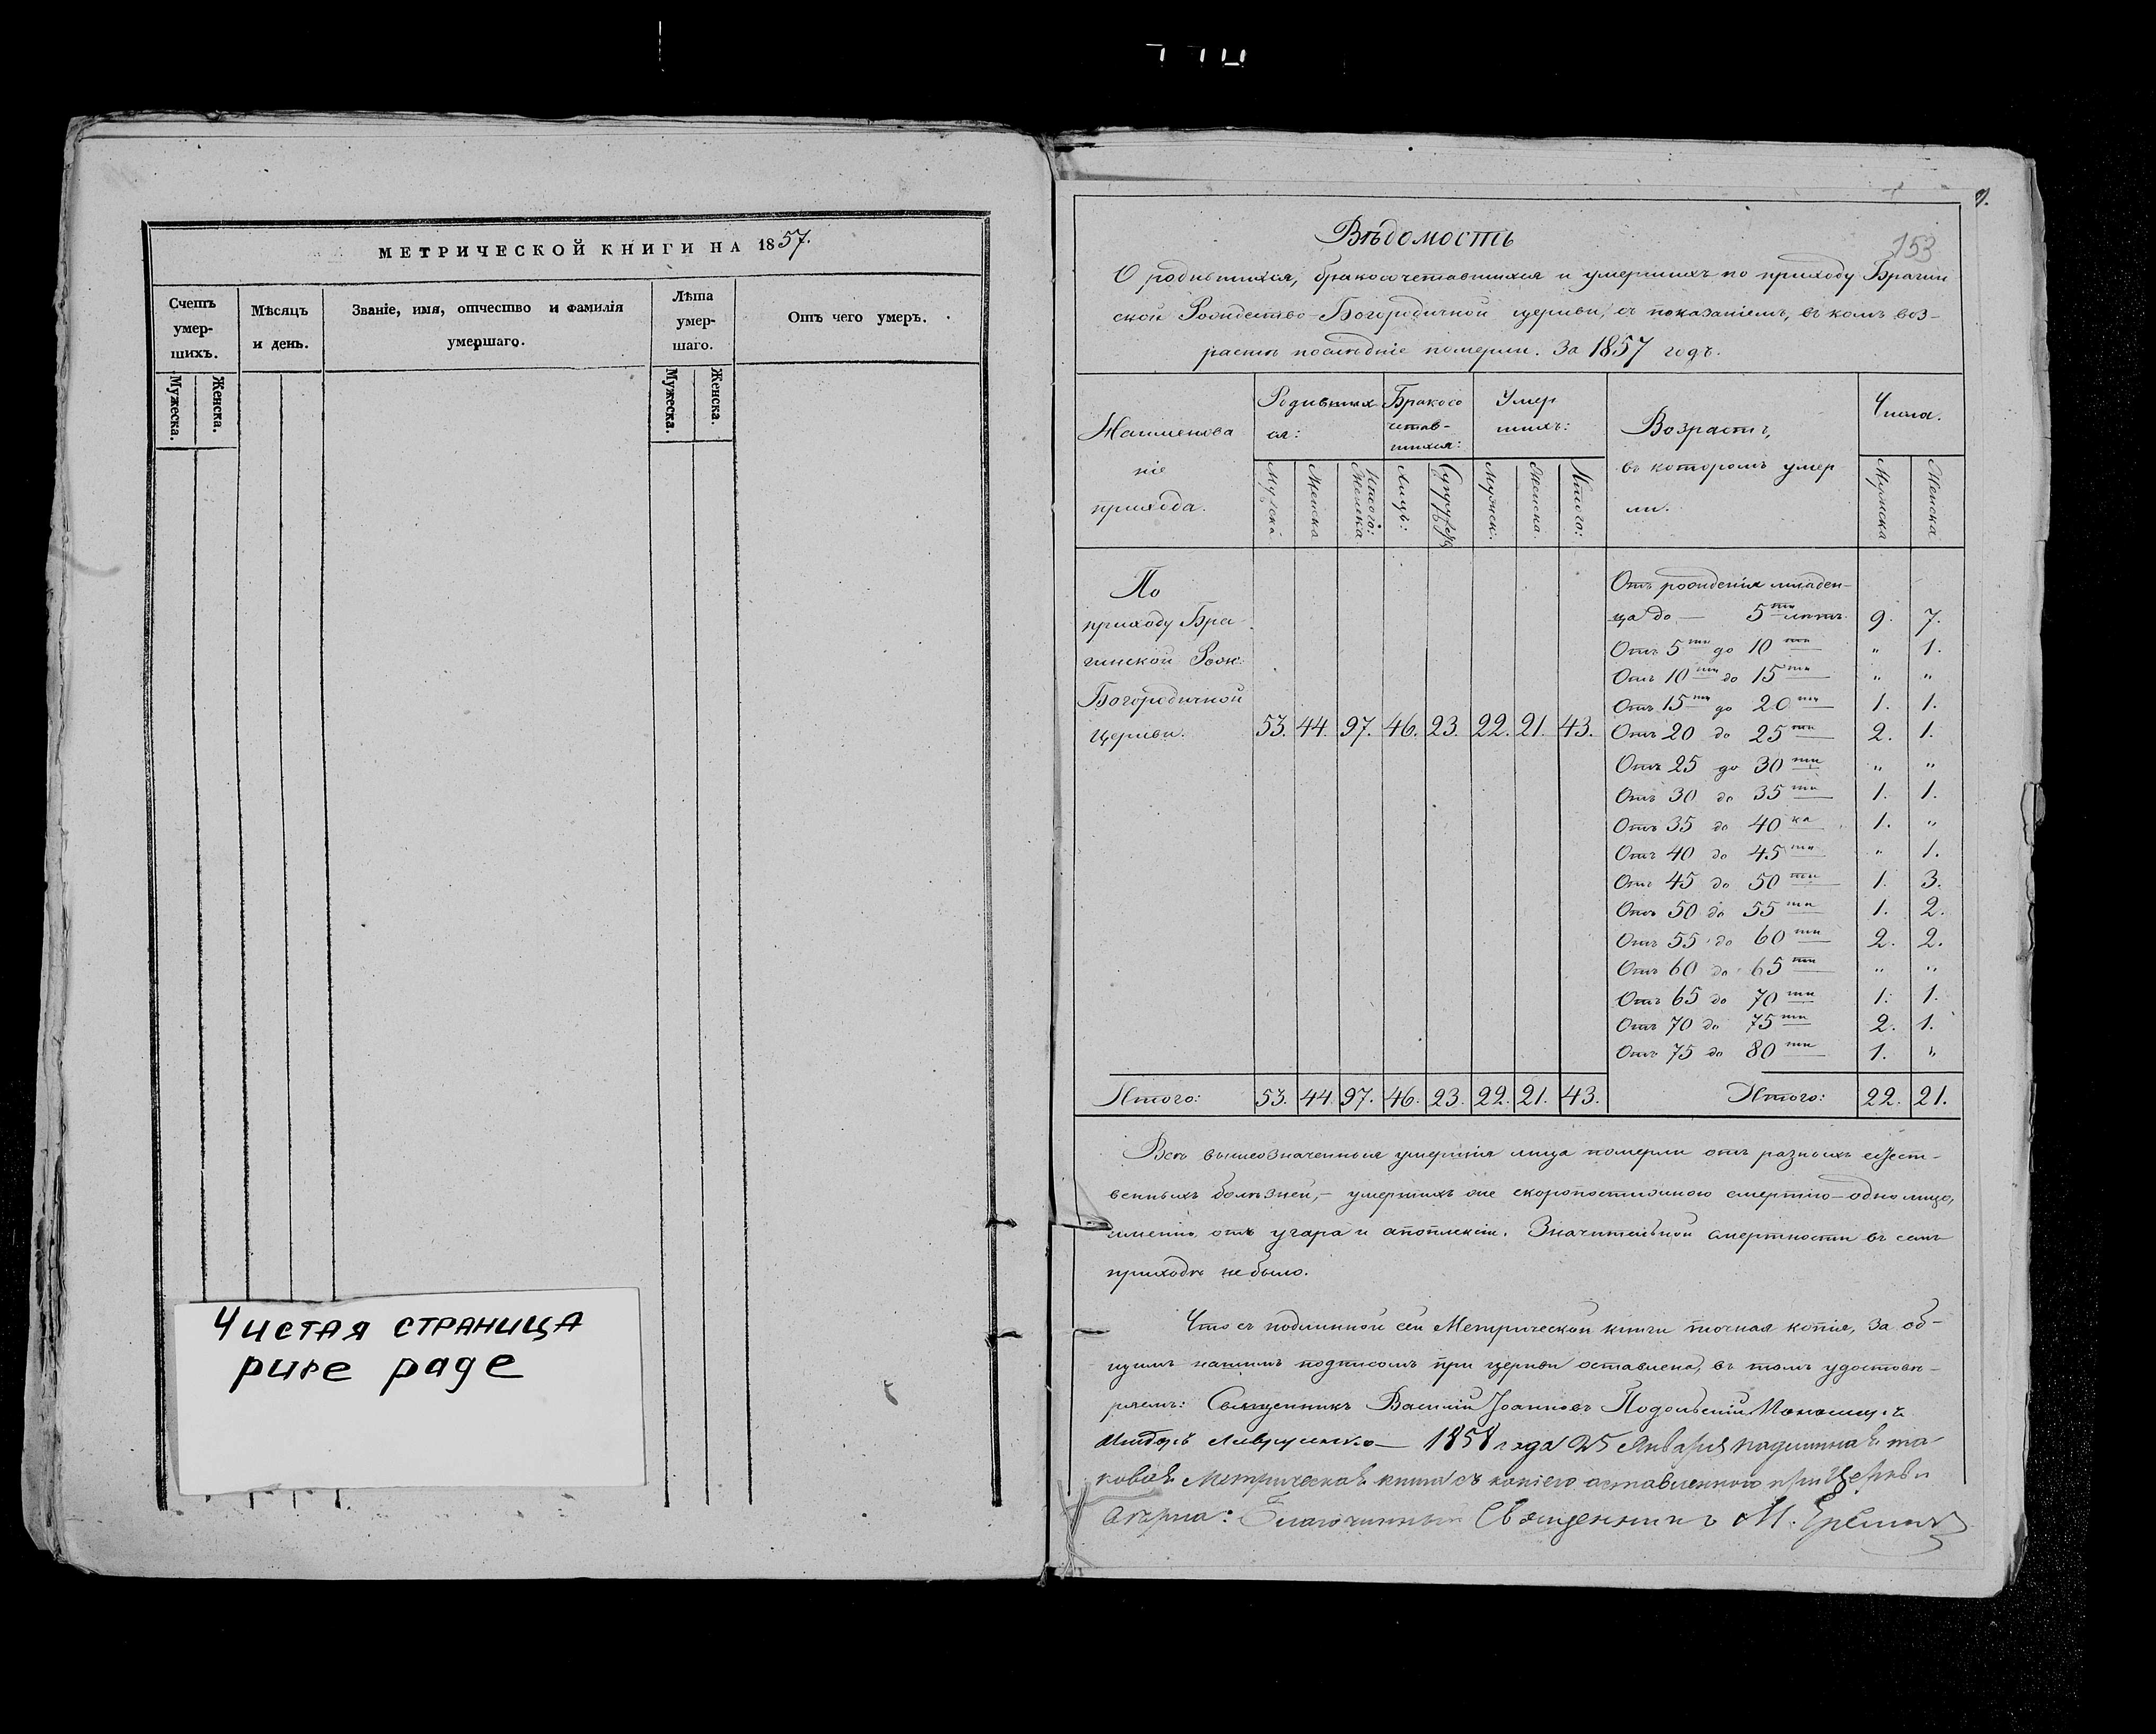 МЕТРИЧЕСКОЙ КНИГИ НА 1857.
Счетъ умер-шихъ.
Мѣсяцъ и день.
Званіе, имя, отчество и фамилія умершаго.
Лѣта умер-шаго.
Отъ чего умеръ.
Мужеска.
Женска.
Мужеска.
Женска.
Чистая страница
pure page
153
Вѣдомость
О родившихся, бракосочетавшихся и умершихъ по приходу Брагин
ской Рождество-Богородичной церкви, съ показаніемъ, въ комъ воз-
растѣ послѣдніе померли. За 1857 годъ.
Наименова
ніе
прихода.
Родивших
ся:
Бракосо
четав-
шихся:
Умер
шихъ:
Возрастъ,
въ которомъ умер
ли.
Числа.
Мужска
Женска
Итого:
Лицъ:
Супруж
Мужск.
Женска.
Итого:
Мужска
Женска
По
приходу Бра-
гинской Рож:
Богородичной
церкви.
53. 44. 97. 46. 23. 22. 21. 43.
Отъ рожденія младен-
ца до — 5ти лѣтъ 9. 7.
Отъ 5ти до 10ти " 1.
Отъ 10ти до 15ти " "
Отъ 15ти до 20ти 1. 1.
Отъ 20 до 25ти 2. 1.
Отъ 25 до 30ти " "
Отъ 30 до 35ти 1. 1.
Отъ 35 до 40ка 1. "
Отъ 40 до 45ти " 1.
Отъ 45 до 50ти 1. 3.
Отъ 50 до 55ти 1. 2.
Отъ 55 до 60ти 2. 2.
Отъ 60 до 65ти " "
Отъ 65 до 70ти 1. 1.
Отъ 70 до 75ти 2. 1.
Отъ 75 до 80ти 1. "
Итого: 53. 44. 97. 46. 23. 22. 21. 43. Итого: 22. 21.
Всѣ вышеозначенныя умершія лица померли отъ разныхъ естест-
венныхъ болѣзней, — умершихъ же скоропостижною смертію — одно лице,
именно отъ угара и апоплексіи. Значительной смертности въ семъ
приходѣ не было.
Что съ подлинной сей Метрической книги точная копія, за об-
щимъ нашимъ подписомъ при церкви оставлена, въ томъ удостовѣ-
ряемъ: Священникъ Василій Іоанновъ Подольскій
1858 года 25 Января подлинная та
ковая Метрическая книга съ копіею оставленною при Церкви
свѣрна: Благочинный Священникъ М.